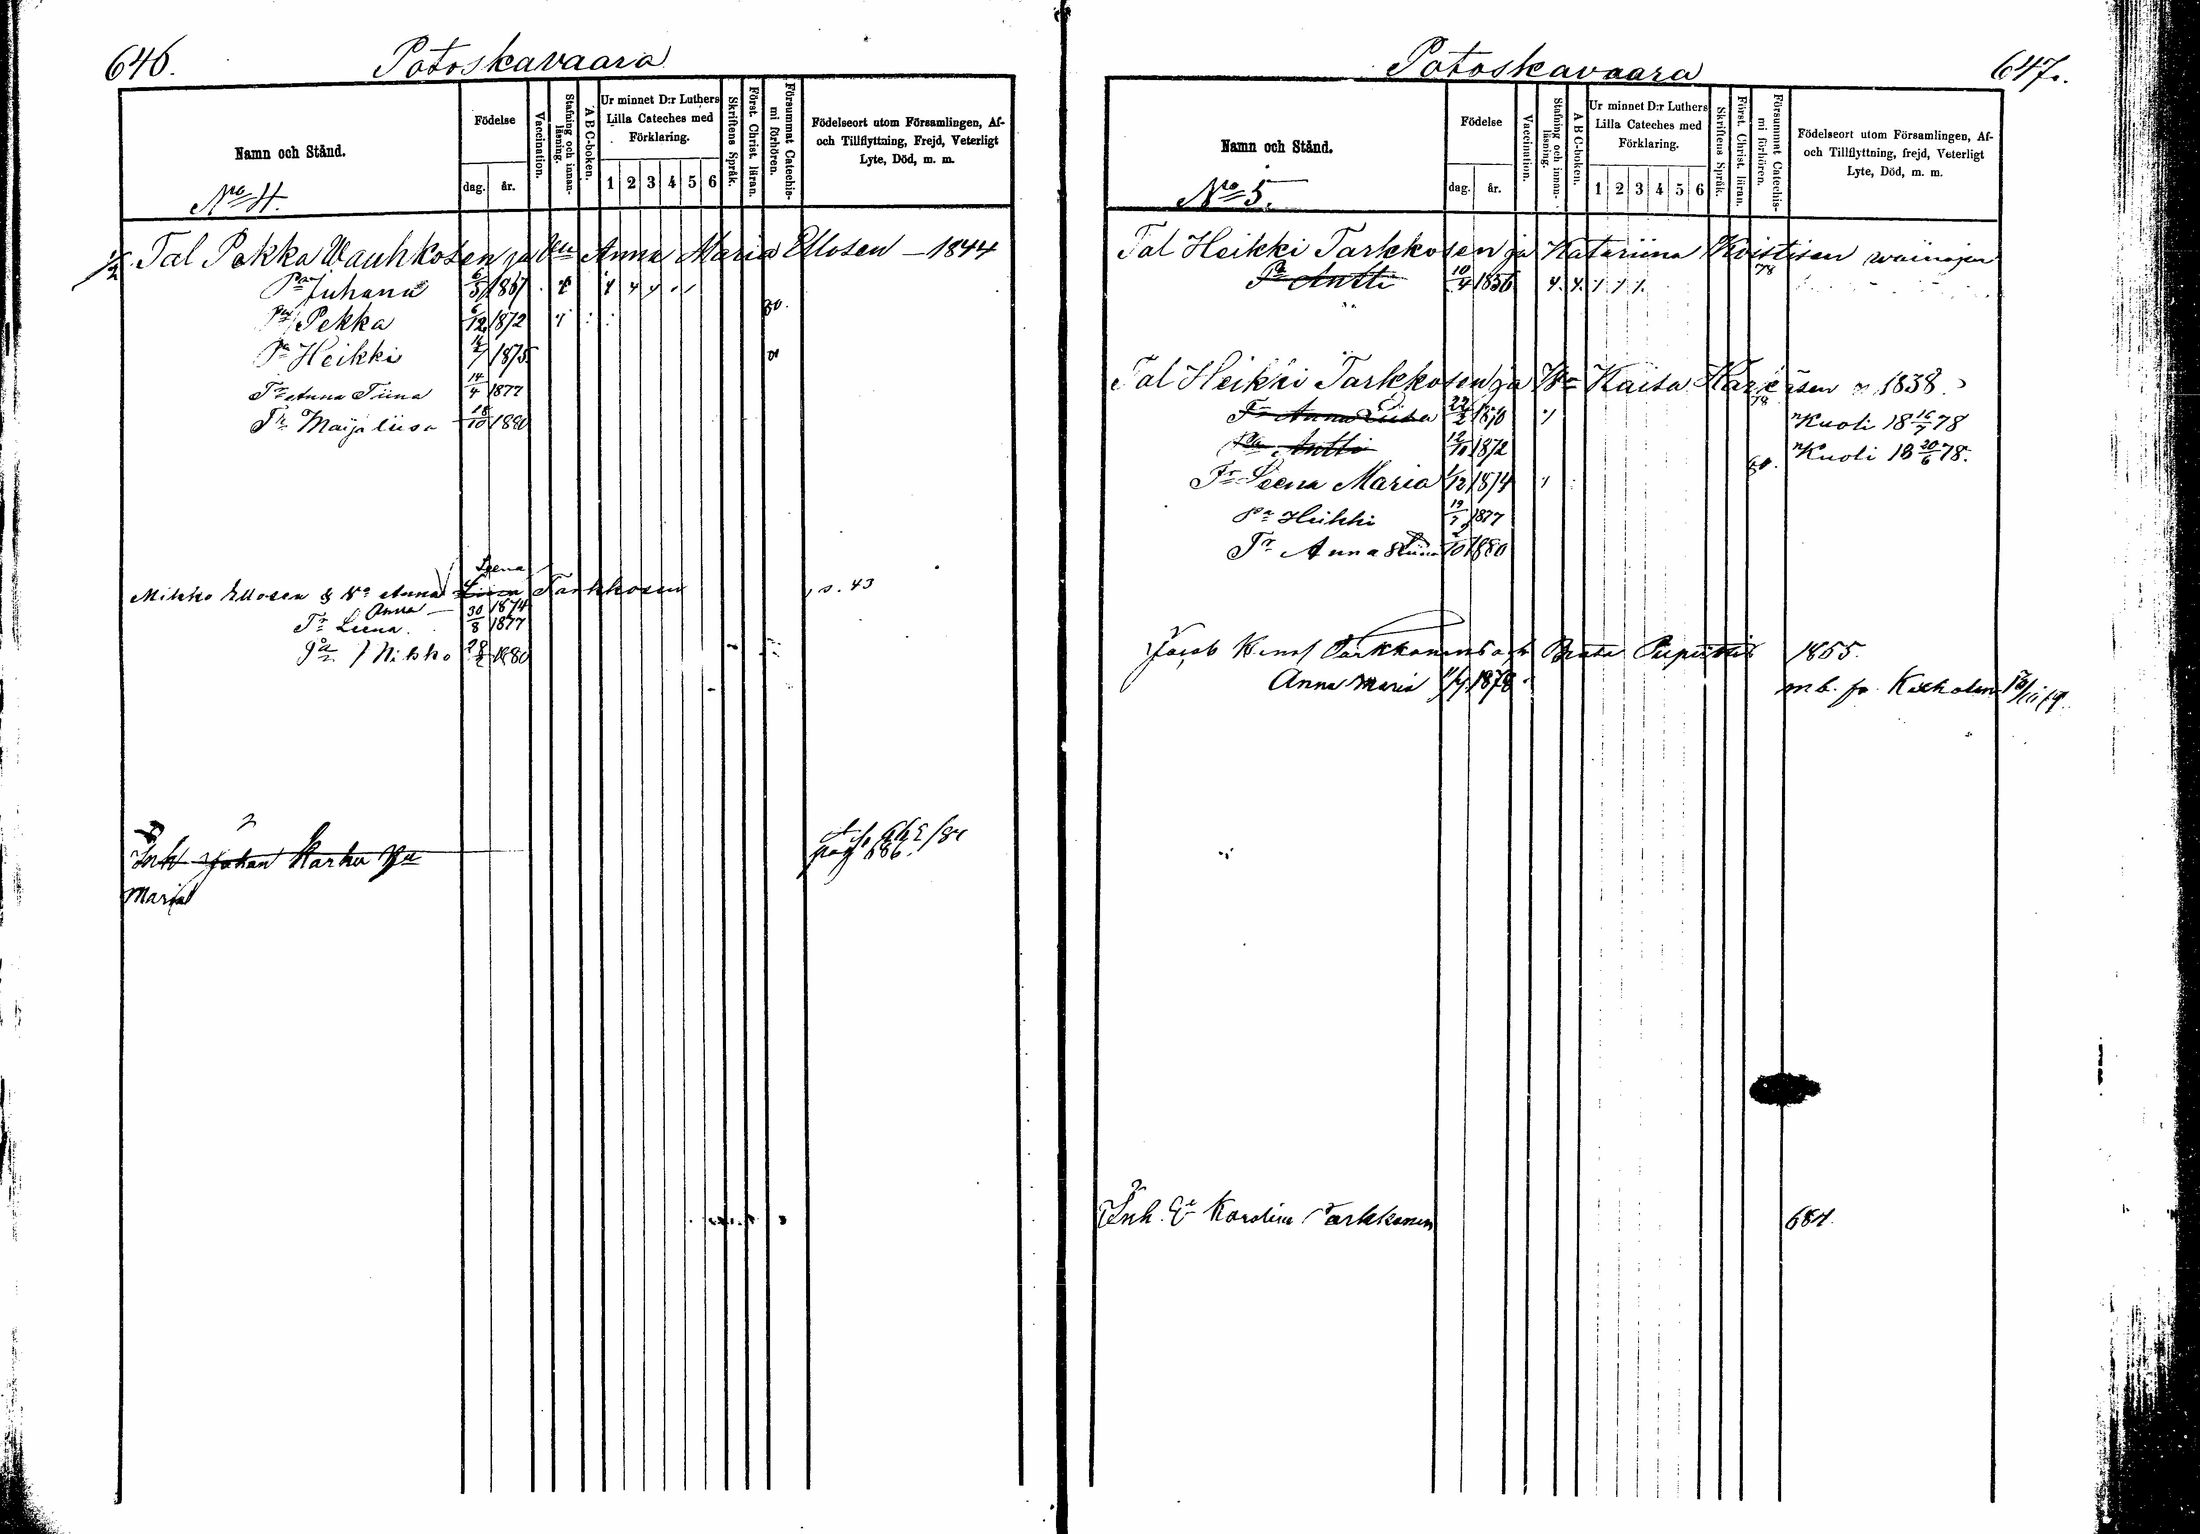 646.
Potoskavaara
Namn och Stånd.
Födelse
dag. år.
Vaccination.
Stafning och innanläsning.
A B C-boken.
Ur minnet D:r Luthers Lilla Cateches med Förklaring.
1 2 3 4 5 6
Skriftens Språk.
Först. Christ. läran.
Försummat Catechismi förhören.
Födelseort utom Församlingen, Af- och Tillflyttning, Frejd, Veterligt Lyte, Död, m. m.
No 4.
1/2 Tal Pekka Wauhkosen ja Anna Maria Ellosen — 1844
Pa Juhana 6/5 1867
Pa Pekka 6/12 1872 80.
Pa Heikki 1875
Tr Anna Tiina 14/4 1877
Tr Maija liisa 18/10 1880
Leena
Mikko Ellosen & Va Anna Tarkkosen s. 43
Anna 1874
Tr Leena. 30/8 1877
Mikko 28/2 1880
Inh Johan Karhu
Maria
647.
Potoskavaara
Namn och Stånd.
Födelse
dag. år.
Vaccination.
Stafning och innanläsning.
A B C-boken.
Ur minnet D:r Luthers Lilla Cateches med Förklaring.
1 2 3 4 5 6
Skriftens Språk.
Först. Christ. läran.
Försummat Catechismi förhören.
Födelseort utom Församlingen, Af- och Tillflyttning, frejd, Veterligt Lyte, Död, m. m.
No 5.
Tal Heikki Tarkkosen ja Katariina Kristisen wainajan
Pa Antti 10/4 1856 78
Tal Heikki Tarkkosen ja Wa Kaisa 1838.
Tr Anna Liisa 22/2 1870 78 Kuoli 18 16/7 78
Pa Antti 12/10 1872 Kuoli 18 20/6 78.
Tr Leena Maria 1/12 1874 80.
Pa Heikki 19/7 1877
Tr Anna Stiina 2/10 1880
Jacob Tarkkanens och Beata 1855.
Anna Maria 1878 m. b. fr. Kexholm
Inh. Karolina Tarkkanen 684.